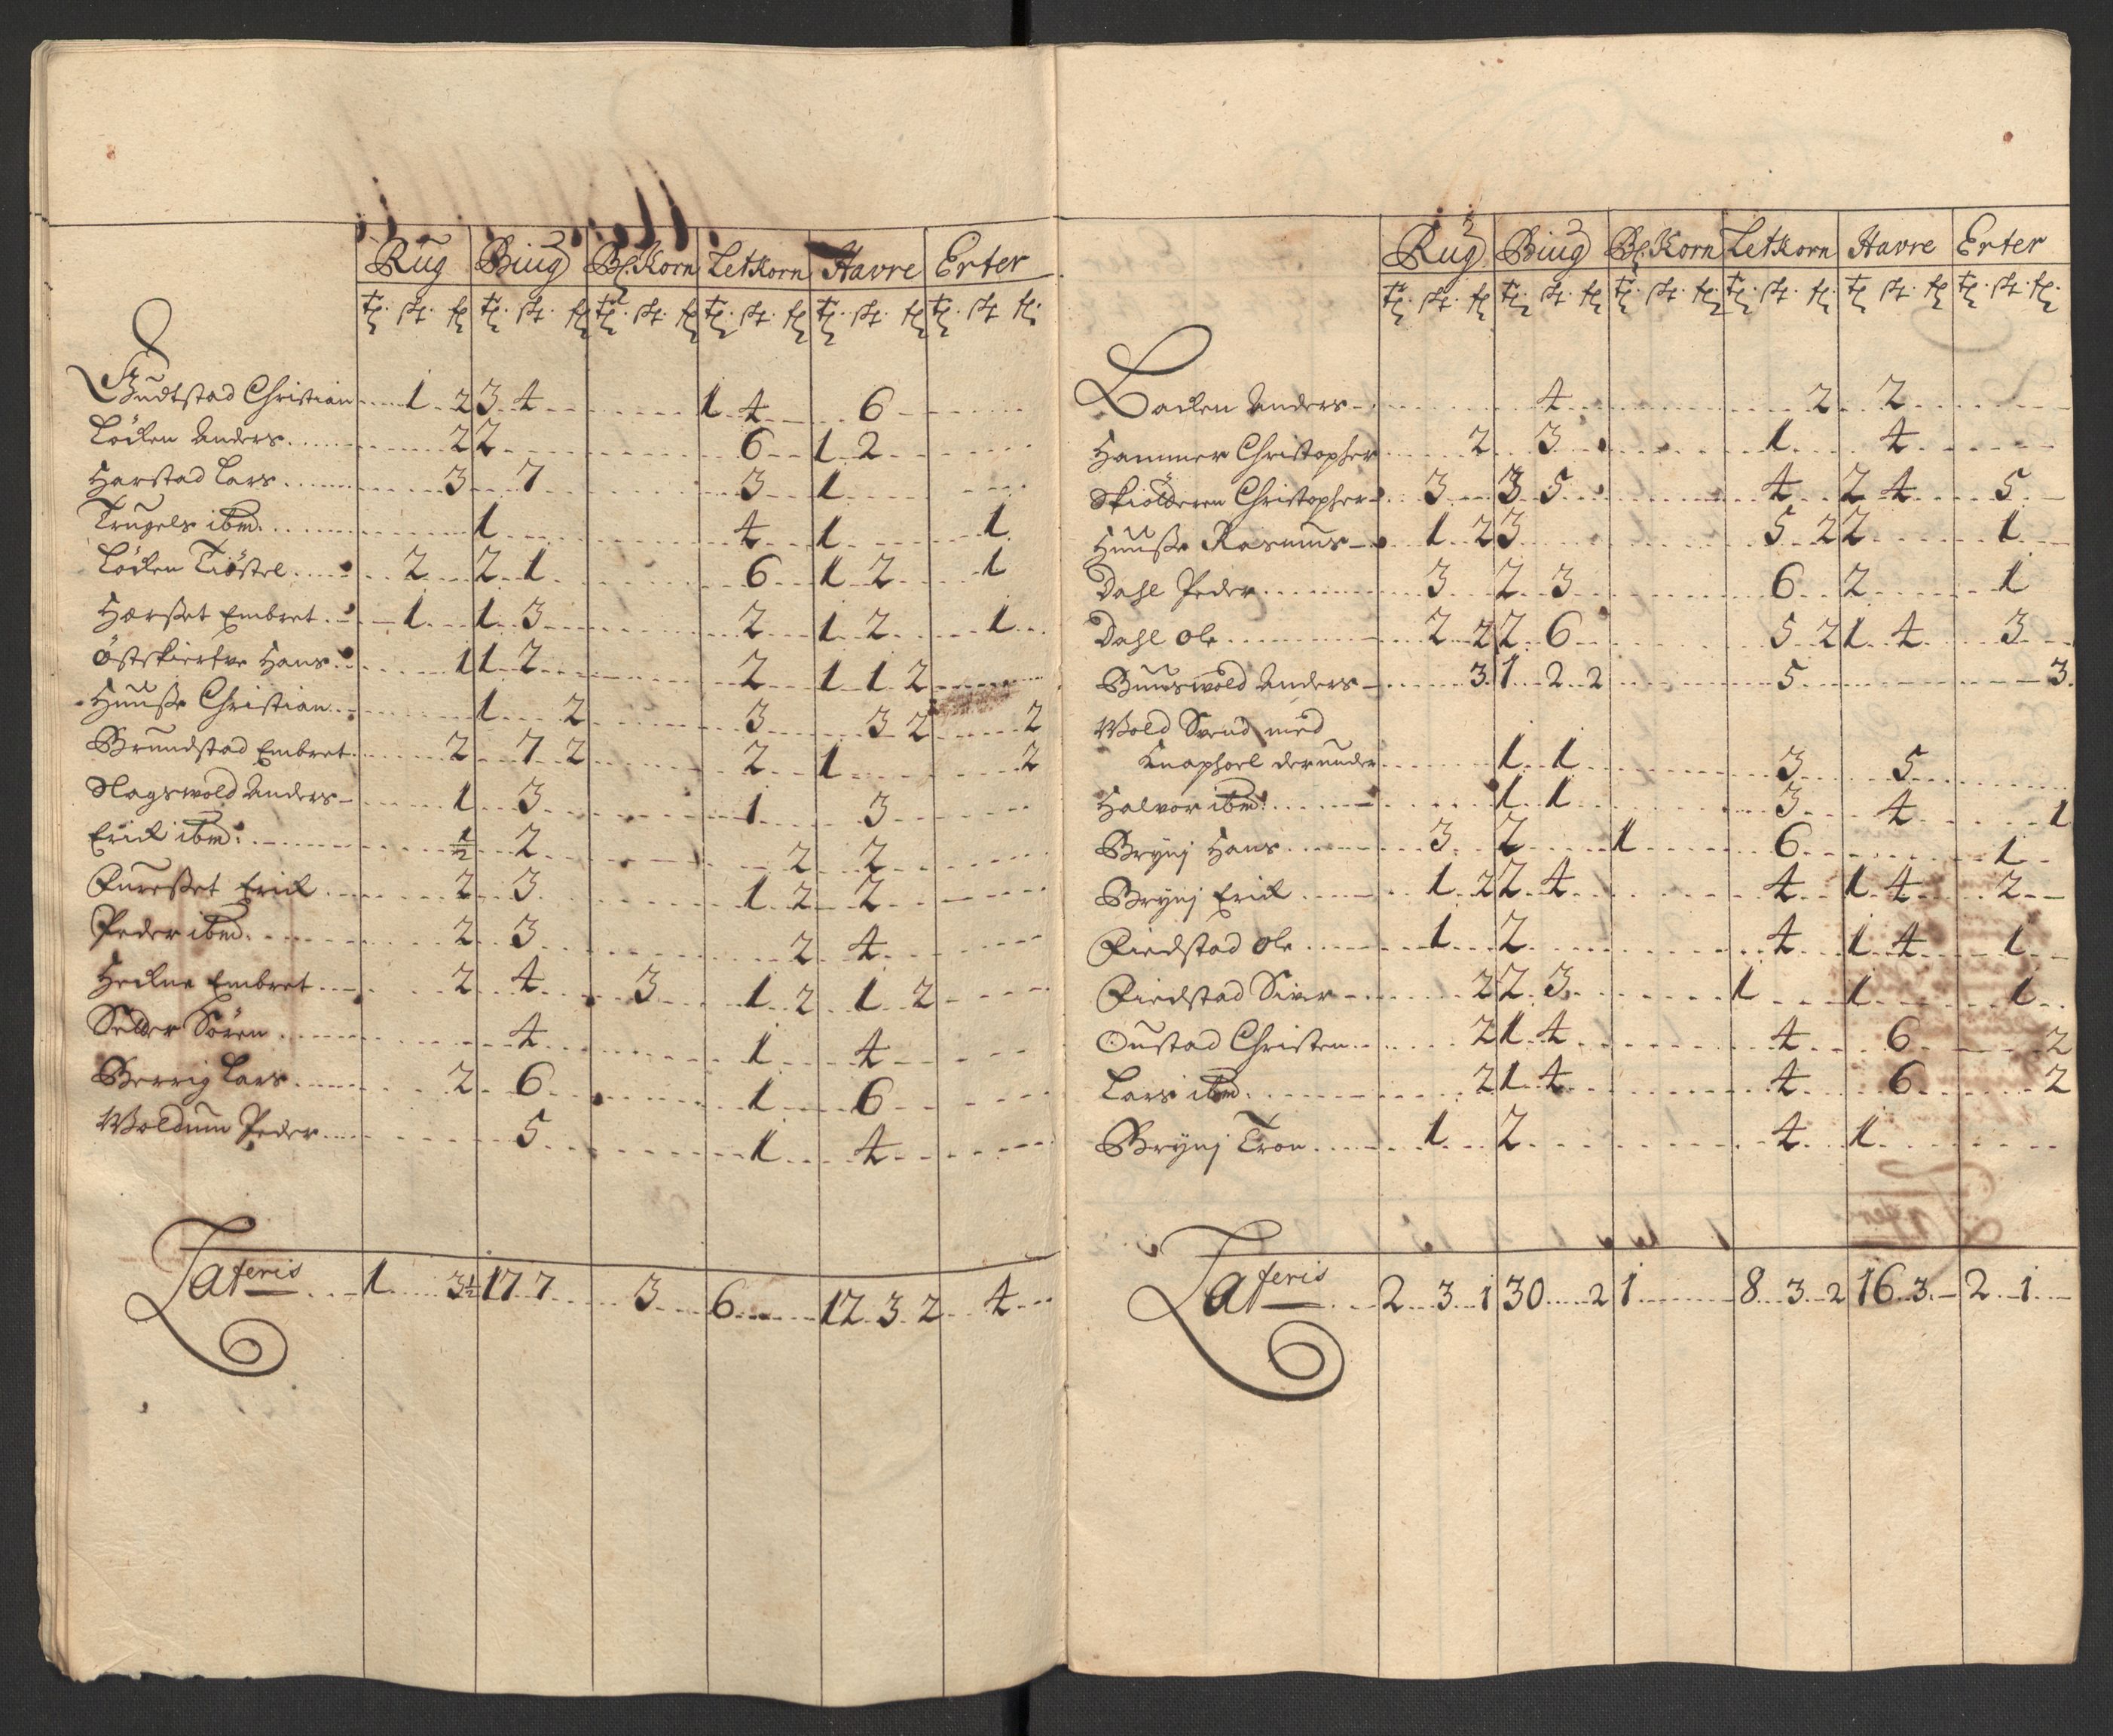 Rug Biug Bl. Korn Letkorn Havre Erter
Gudtstad Christian 1 2 3 4 1 4 6
Löcken Anders 2 2 6 1 2
Harstad Lars 3 7 3 1
Trugels ibm. 1 4 1 1
Löcken Tiöstel 2 2 1 6 1 2 1
Hærset Embret 1 1 3 2 1 2 1
Östskierfve Hans 1 1 2 2 1 1 2
Huuse Christian 1 2 3 3 2 2
Brundstad Embret 2 7 2 2 1 2
Slagswold Anders 1 3 1 3
Erick ibm. ½ 2 2 2
Furesset Erick 2 3 1 2 2
Peder ibm. 2 3 2 4
Heckne Embret 2 4 3 1 2 1 2
Selder Sören 4 1 4
Berrig Lars 2 6 1 6
Woldum Peder 5 1 4
Lateris 1 3½ 17 7 3 6 12 3 2 4
Rug Biug Bl. Korn Letkorn Havre Erter
Backen Anders 4 2 2
Hammer Christopher 2 3 1 4
Skiolderen Christopher 3 3 5 4 2 4 5
Huuse Rasmus 1 2 3 5 2 2 1
Dahl Peder 3 2 3 6 2 1
Dahl Ole 2 2 2 6 5 2 1 4 3
Buuswold Anders 3 1 2 2 5 3
Wold Svend med
Knaphoel derunder 1 1 3 5
Halvor ibm. 1 1 3 4 1
Brynj Hans 3 2 1 6 1
Brynj Erick 1 2 2 4 4 1 4 2
Fiedstad Ole 1 2 4 1 4 1
Fiedstad Siver 2 2 3 1 1 1
Oustad Christen 2 1 4 4 6 2
Lars ibm. 2 1 4 4 6 2
Brynj Tron 1 2 4 1
Lateris 2 3 1 30 2 1 8 3 2 16 3 2 1